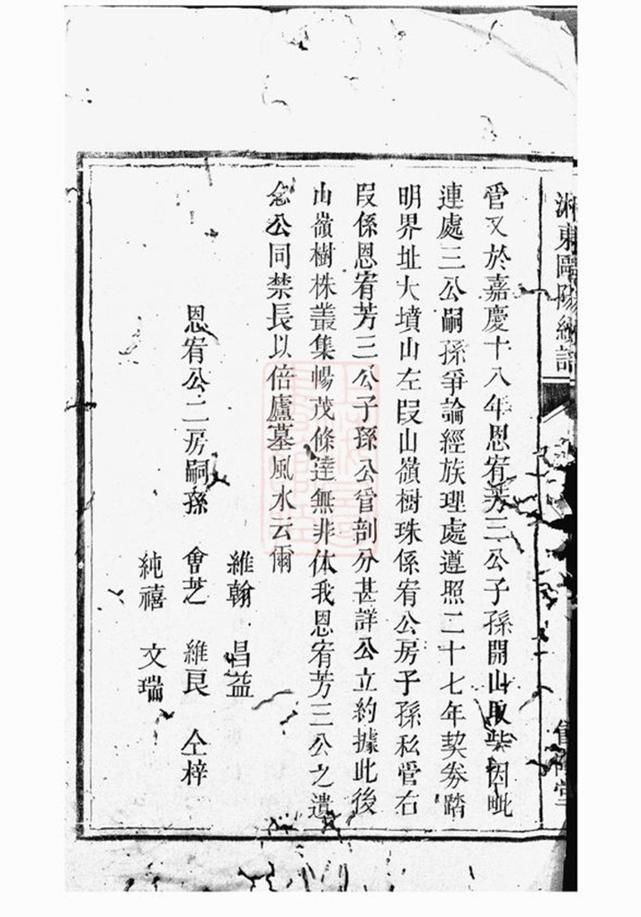 湘東歐陽
管又於嘉慶十八年恩宥芳三公子孫開山取柴因毗
連處三公嗣孫爭論經族理處遵照二十七年契劵踏
明界址大墳山左叚山嶺樹珠係宥公房子孫私管右
叚係恩宥芳三公子孫公管剖分甚詳公立約據此後
山嶺樹株叢集暢茂條達無非体我恩宥芳三公之遺
念公同禁長以倍廬墓風水云爾
維翰 昌益
恩宥公二房嗣孫 會芝 維良 仝梓
純禧 文瑞